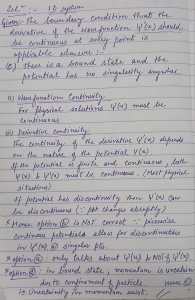 Sol^n :- 1D system
Given: The boundary condition that the
derivative of the wavefunction ψ'(x) should
be continuous at every point is
applicable whenever :-
(c) There is a bound state and the
potential has no singularity anywhere
(i) Wavefunction Continuity:
For physical solutions ψ(x) must be
continuous
(ii) Derivative continuity:
The continuity of the derivative ψ'(x) depends
on the nature of the potential V(x)
If the potential is finite and continuous, both
ψ(x) & ψ'(x) must be continuous. (Most physical
situations)
If potential has discontinuity then ψ'(x) can
be discontinuous (∵ ppt changes abruptly)
* Hence option is NOT correct ∵ piecewise
continuous potentials allows for discontinuities
in ψ'(x) @ singular pts.
* option only talks about ψ(x) & NOT ψ'(x)
* option in bound state, momentum is uncertain
due to confinement of particle
is Uncertainty in momentum exist.